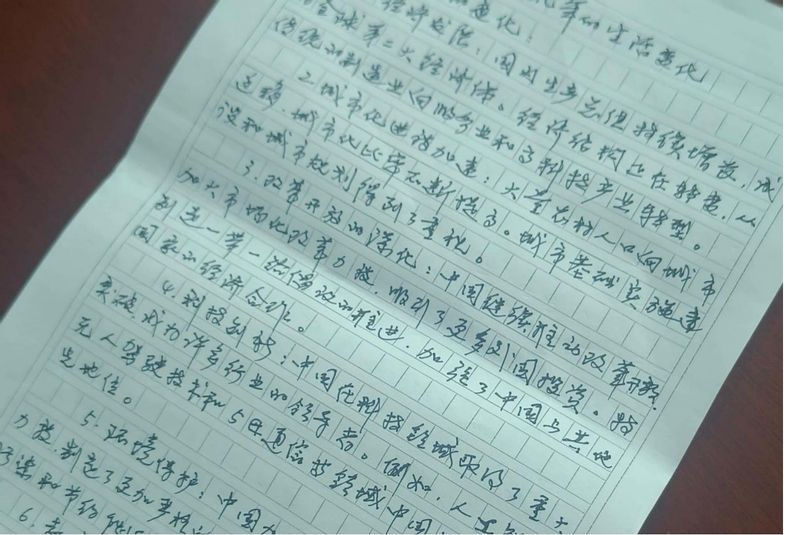 年的生活变化
变化：
经济发展：国内生产总值持续增长，成
为全球第二大经济体。经济结构正在转变，从
传统的制造业向服务业和高科技产业转型。
2.城市化进程加速：大量农村人口向城市
迁移，城市化比率不断提高。城市基础实施建
设和城市规划得到了重视。
3.改革开放的深化：中国继续推动改革开放，
加大市场化改革力度，吸引了更多外国投资。特
别是一带一路倡议的推进，加强了中国与其他
国家的经济合作。
4.科技创新：中国在科技领域取得了重大
突破，成为许多行业的领导者。例如，人工
无人驾驶技术和5G通信技领域，中国
先地位。
5.环境保护：中国
力度，制定了更加严格
污染和节约能
6.